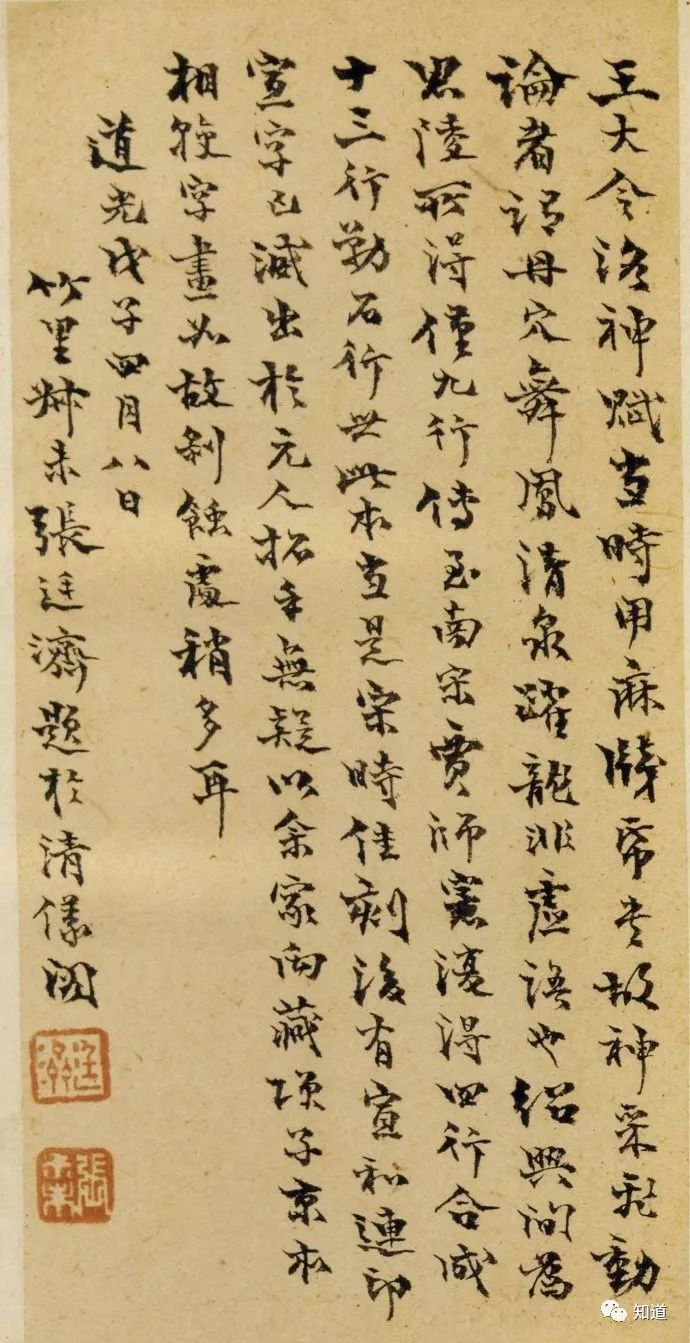 王大令洛神賦當時用麻牋帋書故神采飛動
論者謂丹穴舞鳳清泉躍龍非虛語也紹興間為
思陵所得僅九行傳至南宋賈師憲濅得四行合成
十三行勒石行世此本宜是宋時佳刻後有宣和連印
宣字已減出於元人拓手無疑以余家向藏項子京本
相較字畫如故剝蝕處稍多耳
道光戊子四月八日
竹里叔未張廷濟題於清儀閣
廷濟
張叔未
知道